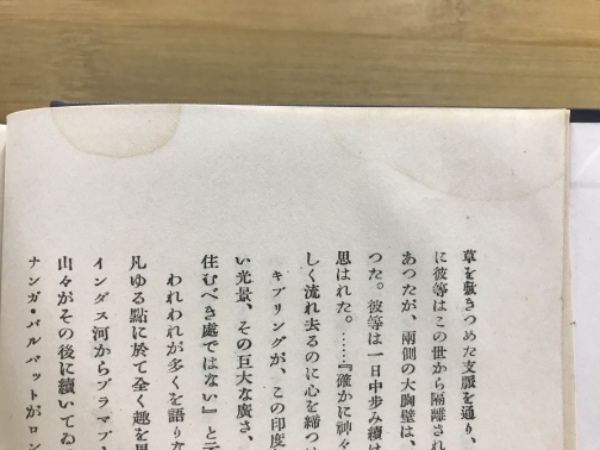 草を敷きつめた支脈を通り、
に彼等はこの世から隔離され
あつたが、兩側の大胸壁は、
つた。彼等は一日中歩み續け
思はれた。……『確かに神々
しく流れ去るのに心を締つけ
キプリングが、この印度
い光景、その巨大な廣さ、
住むべき處ではない』と云
われわれが多くを語りな
凡ゆる點に於て全く趣を異
インダス河からブラマプ
山々がその後に續いてゐ
ナンガ・パルバットがロン